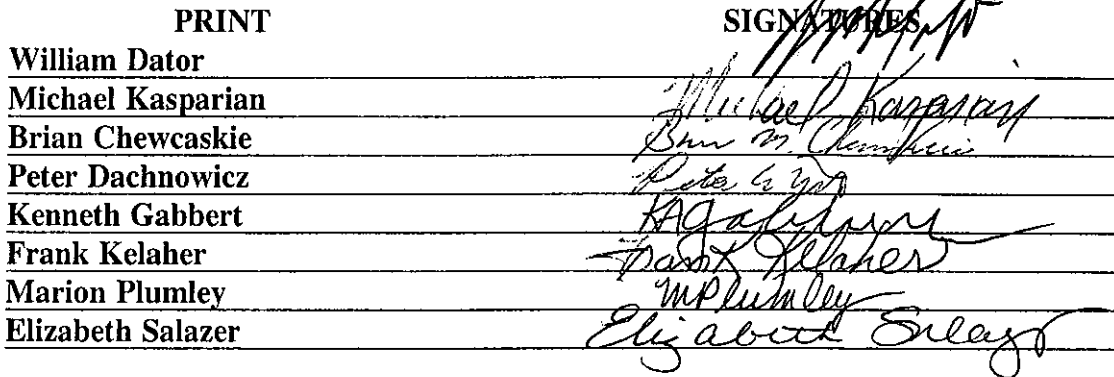 PRINT SIGNATURES
William Dator
Michael Kasparian Michael Kasparian
Brian Chewcaskie Brian M. Chewcaskie
Peter Dachnowicz Peter
Kenneth Gabbert KAGabbert
Frank Kelaher Frank Kelaher
Marion Plumley MPlumley
Elizabeth Salazer Elizabeth Salazer